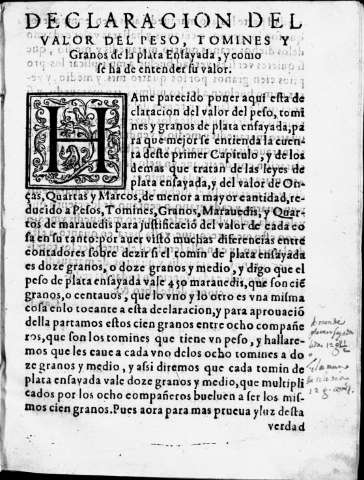 DECLARACION DEL
VALOR DEL PESO, TOMINES Y
Granos de la plata Ensayada, y como
se ha de entender su valor.
HAme parecido poner aqui esta de
claracion del valor del peso, tomi
nes y granos de plata ensayada, pa
ra que mejor se entienda la cuen-
ta deste primer Capitulo, y de los
demas que tratan de las leyes de
plata ensayada, y del valor de On-
ças, Quartas y Marcos, de menor a mayor cantidad, re-
ducido a Pesos, Tomines, Granos, Marauedis, y Quar-
tos de marauedis para justificació del valor de cada co
sa en su tanto: por auer visto muchas diferencias entre
contadores sobre dezir si el tomin de plata ensayada
es doze granos, o doze granos y medio, y digo que el
peso de plata ensayada vale 450 marauedis, que son cié
granos, o centauos, que lo vno y lo otro es vna misma
cosa en lo tocante a esta declaracion, y para aprouació
della partamos estos cien granos entre ocho compañe
ros, que son los tomines que tiene vn peso, y hallare-
mos que les caue a cada vno delos ocho tomines a do
ze granos y medio, y assi diremos que cada tomin de
plata ensayada vale doze granos y medio, que multipli
cados por los ocho compañeros bueluen a ser los mis-
mos cien granos. Pues aora para mas prueua y luz desta
verdad